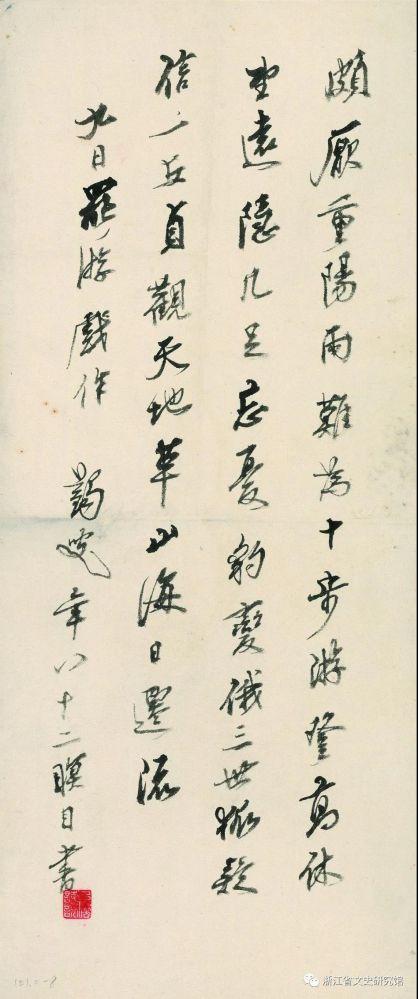 頗厭重陽雨難為十步游登高休
望遠隱几足忘憂豹變俄三世狐疑
信一丘貞觀天地革山海日遷流
九日罷游戲作 蠲叟年八十二瞑目書
浙江省文史研究馆